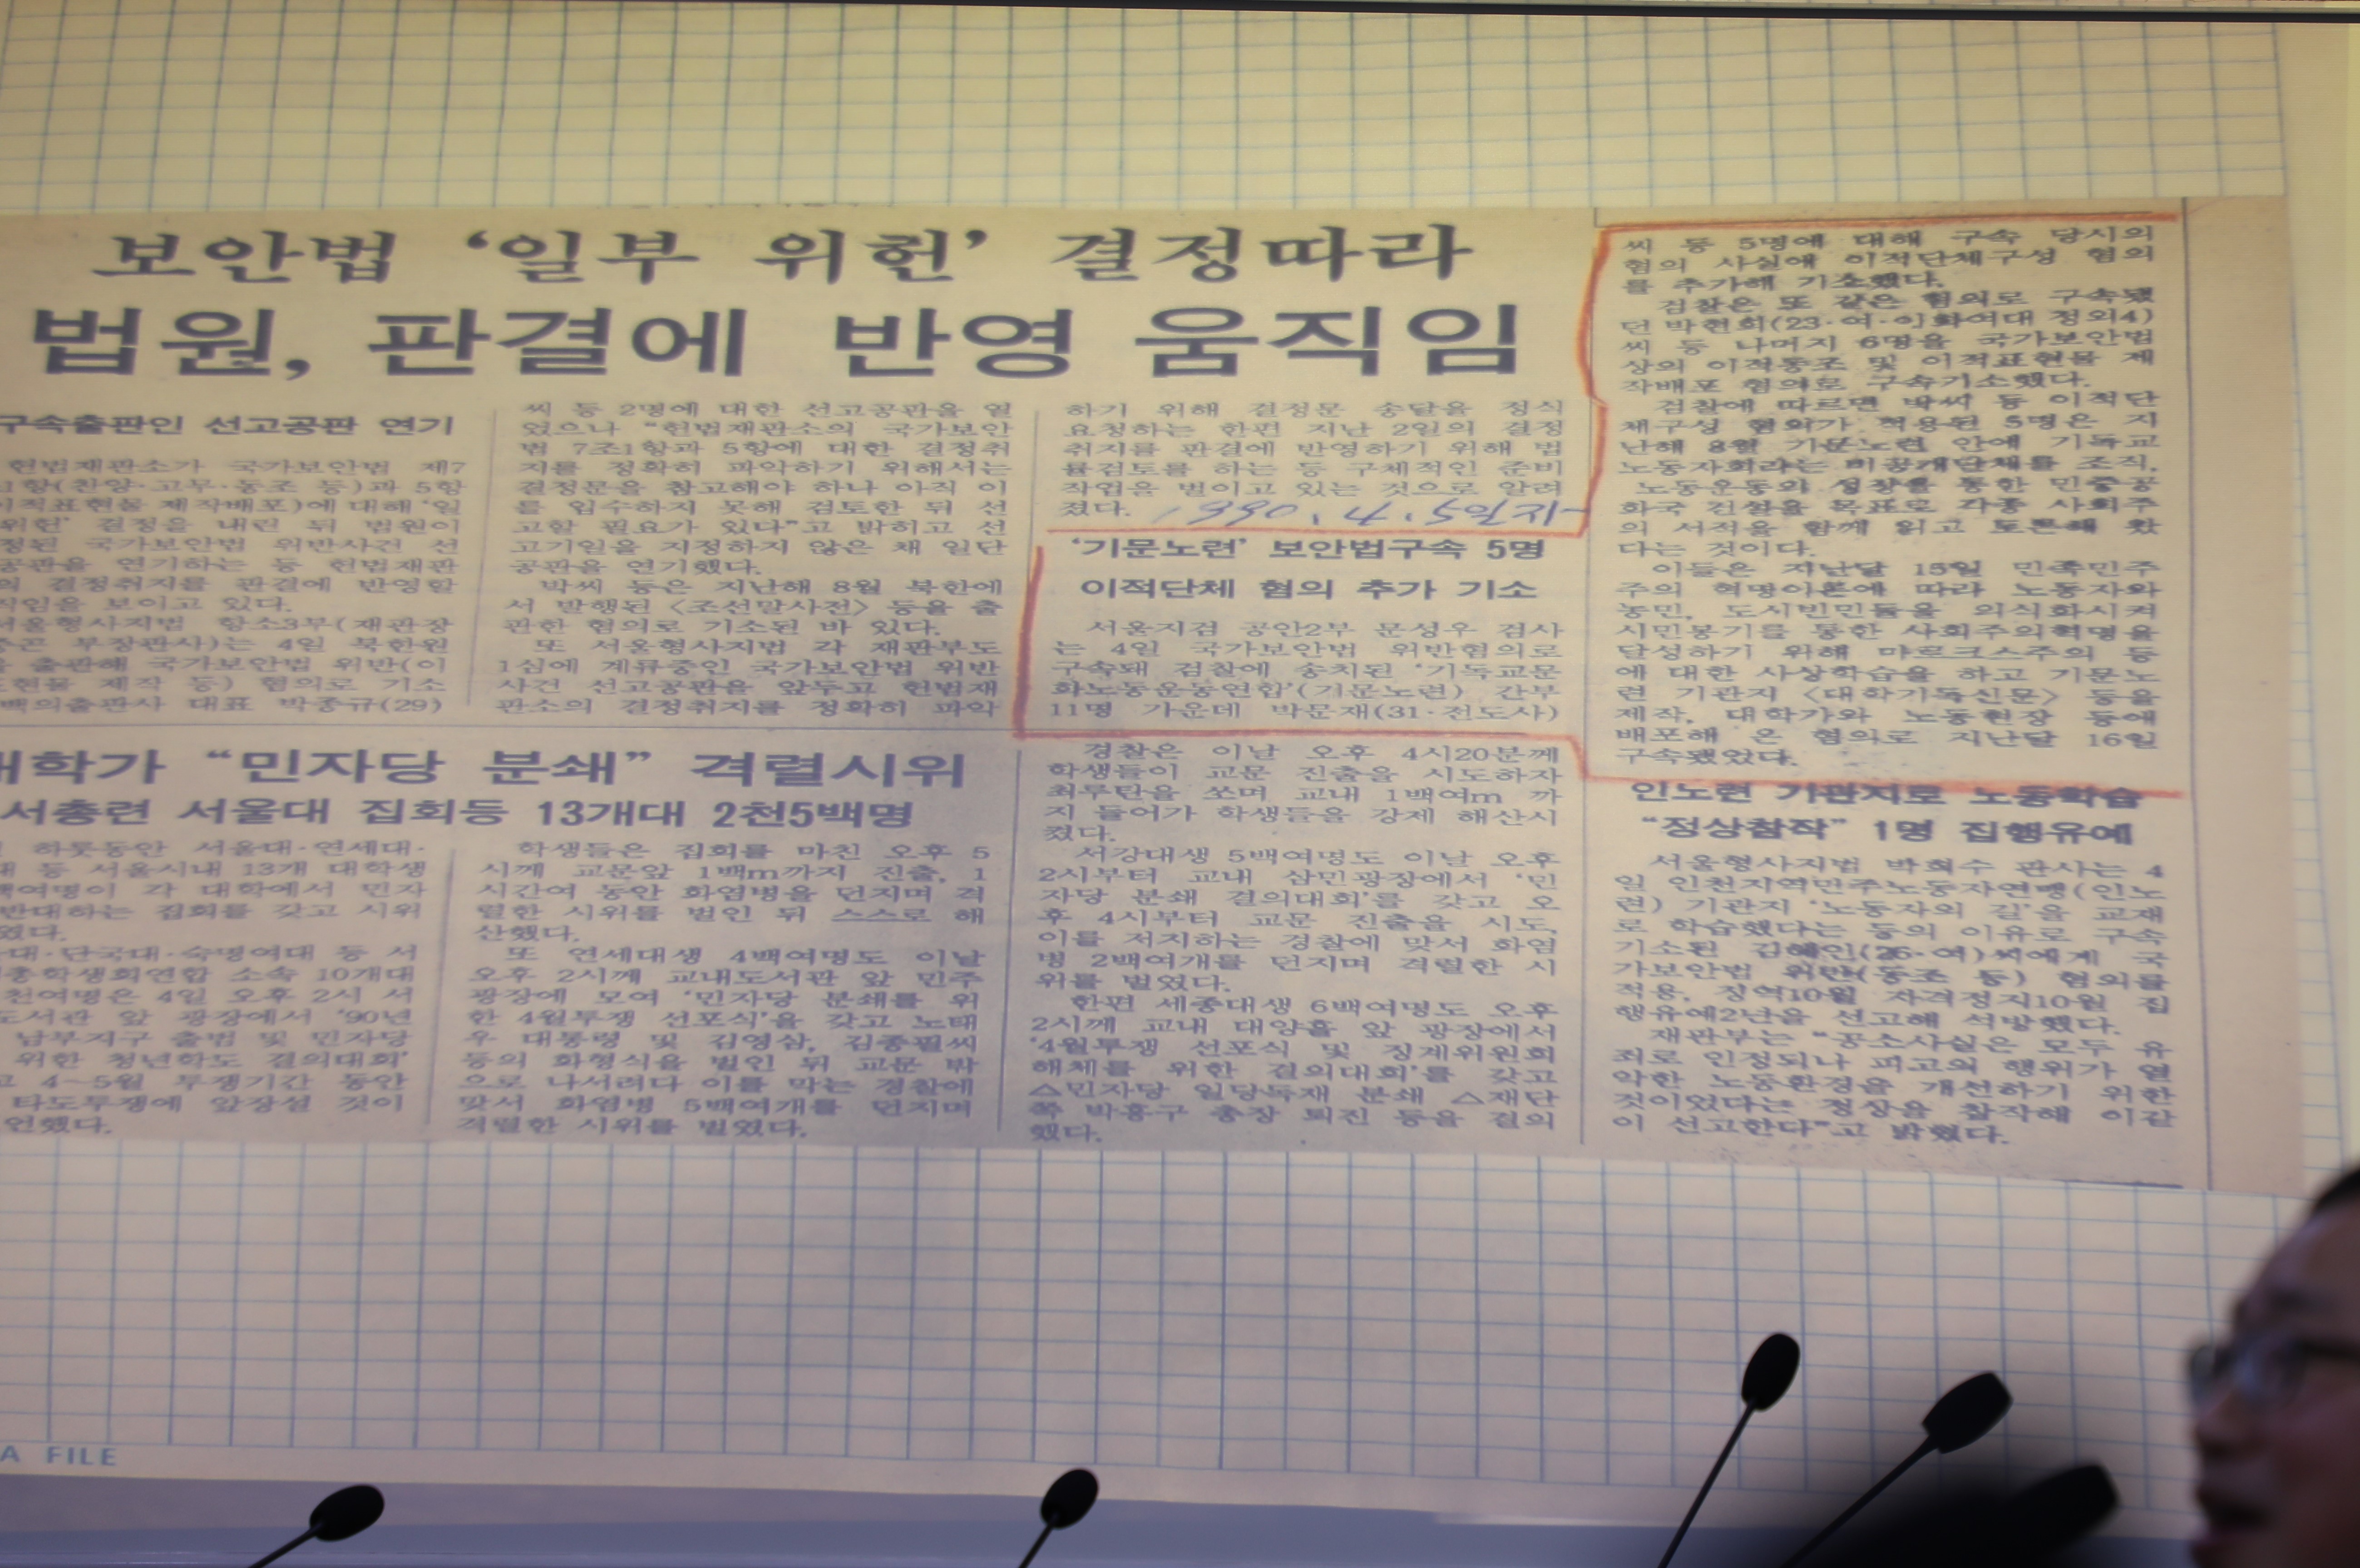 보안법 ‘일부 위헌’ 결정따라
법원, 판결에 반영 움직임
구속출판인 선고공판 연기
헌법재판소가 국가보안법 제7
1항(찬양·고무·동조 등)과 5항
이적표현물 제작배포)에 대해 ‘일
위헌’ 결정을 내린 뒤 법원이
정된 국가보안법 위반사건 선
공판을 연기하는 등 헌법재판
의 결정취지를 판결에 반영할
직임을 보이고 있다.
서울형사지법 항소3부(재판장
부장판사)는 4일 북한원
출판해 국가보안법 위반(이
표현물 제작 등) 혐의로 기소
백의출판사 대표 박종규(29)
씨 등 2명에 대한 선고공판을 열
었으나 “헌법재판소의 국가보안
법 7조1항과 5항에 대한 결정취
지를 정확히 파악하기 위해서는
결정문을 참고해야 하나 아직 이
를 입수하지 못해 검토한 뒤 선
고할 필요가 있다”고 밝히고 선
고기일을 지정하지 않은 채 일단
공판을 연기했다.
박씨 등은 지난해 8월 북한에
서 발행된 〈조선말사전〉 등을 출
판한 혐의로 기소된 바 있다.
또 서울형사지법 각 재판부도
1심에 계류중인 국가보안법 위반
사건 선고공판을 앞두고 헌법재
판소의 결정취지를 정확히 파악
하기 위해 결정문 송달을 정식
요청하는 한편 지난 2일의 결정
취지를 판결에 반영하기 위해 법
률검토를 하는 등 구체적인 준비
작업을 벌이고 있는 것으로 알려
졌다.
1990. 4. 5일자
‘기문노련’ 보안법구속 5명
이적단체 혐의 추가 기소
서울지검 공안2부 문성우 검사
는 4일 국가보안법 위반혐의로
구속돼 검찰에 송치된 ‘기독교문
화노동운동연합’(기문노련) 간부
11명 가운데 박문재(31·전도사)
씨 등 5명에 대해 구속 당시의
혐의 사실에 이적단체구성 혐의
를 추가해 기소했다.
검찰은 또 같은 혐의로 구속됐
던 박현희(23·여·이화여대 정외4)
씨 등 나머지 6명을 국가보안법
상의 이적동조 및 이적표현물 제
작배포 혐의로 구속기소했다.
검찰에 따르면 박씨 등 이적단
체구성 혐의가 적용된 5명은 지
난해 8월 기문노련 안에 기독교
노동자회라는 비공개단체를 조직,
노동운동의 성장을 통한 민중공
화국 건설을 목표로 각종 사회주
의 서적을 함께 읽고 토론해 왔
다는 것이다.
이들은 지난달 15일 민족민주
주의 혁명이론에 따라 노동자와
농민, 도시빈민들을 의식화시켜
시민봉기를 통한 사회주의혁명을
달성하기 위해 마르크스주의 등
에 대한 사상학습을 하고 기문노
련 기관지 〈대학기독신문〉 등을
제작, 대학가와 노동현장 등에
배포해 온 혐의로 지난달 16일
구속됐었다.
대학가 “민자당 분쇄” 격렬시위
서총련 서울대 집회등 13개대 2천5백명
하룻동안 서울대·연세대·
대 등 서울시내 13개 대학생
백여명이 각 대학에서 민자
반대하는 집회를 갖고 시위
였다.
대·단국대·숙명여대 등 서
총학생회연합 소속 10개대
천여명은 4일 오후 2시 서
도서관 앞 광장에서 ‘90년
남부지구 출범 및 민자당
위한 청년학도 결의대회’
고 4~5월 투쟁기간 동안
타도투쟁에 앞장설 것이
언했다.
학생들은 집회를 마친 오후 5
시께 교문앞 1백m까지 진출, 1
시간여 동안 화염병을 던지며 격
렬한 시위를 벌인 뒤 스스로 해
산했다.
또 연세대생 4백여명도 이날
오후 2시께 교내도서관 앞 민주
광장에 모여 ‘민자당 분쇄를 위
한 4월투쟁 선포식’을 갖고 노태
우 대통령 및 김영삼, 김종필씨
등의 화형식을 벌인 뒤 교문 밖
으로 나서려다 이를 막는 경찰에
맞서 화염병 5백여개를 던지며
격렬한 시위를 벌였다.
경찰은 이날 오후 4시20분께
학생들이 교문 진출을 시도하자
최루탄을 쏘며 교내 1백여m 까
지 들어가 학생들을 강제 해산시
켰다.
서강대생 5백여명도 이날 오후
2시부터 교내 삼민광장에서 ‘민
자당 분쇄 결의대회’를 갖고 오
후 4시부터 교문 진출을 시도,
이를 저지하는 경찰에 맞서 화염
병 2백여개를 던지며 격렬한 시
위를 벌였다.
한편 세종대생 6백여명도 오후
2시께 교내 대양홀 앞 광장에서
‘4월투쟁 선포식 및 징계위원회
해체를 위한 결의대회’를 갖고
△민자당 일당독재 분쇄 △재단
쪽 박홍구 총장 퇴진 등을 결의
했다.
인노련 기관지로 노동학습
“정상참작” 1명 집행유예
서울형사지법 박형수 판사는 4
일 인천지역민주노동자연맹(인노
련) 기관지 ‘노동자의 길’을 교재
로 학습했다는 등의 이유로 구속
기소된 김혜인(26·여)씨에게 국
가보안법 위반(동조 등) 혐의를
적용, 징역10월 자격정지10월 집
행유예2년을 선고해 석방했다.
재판부는 “공소사실은 모두 유
죄로 인정되나 피고의 행위가 열
악한 노동환경을 개선하기 위한
것이었다는 정상을 참작해 이같
이 선고한다”고 밝혔다.
A FILE